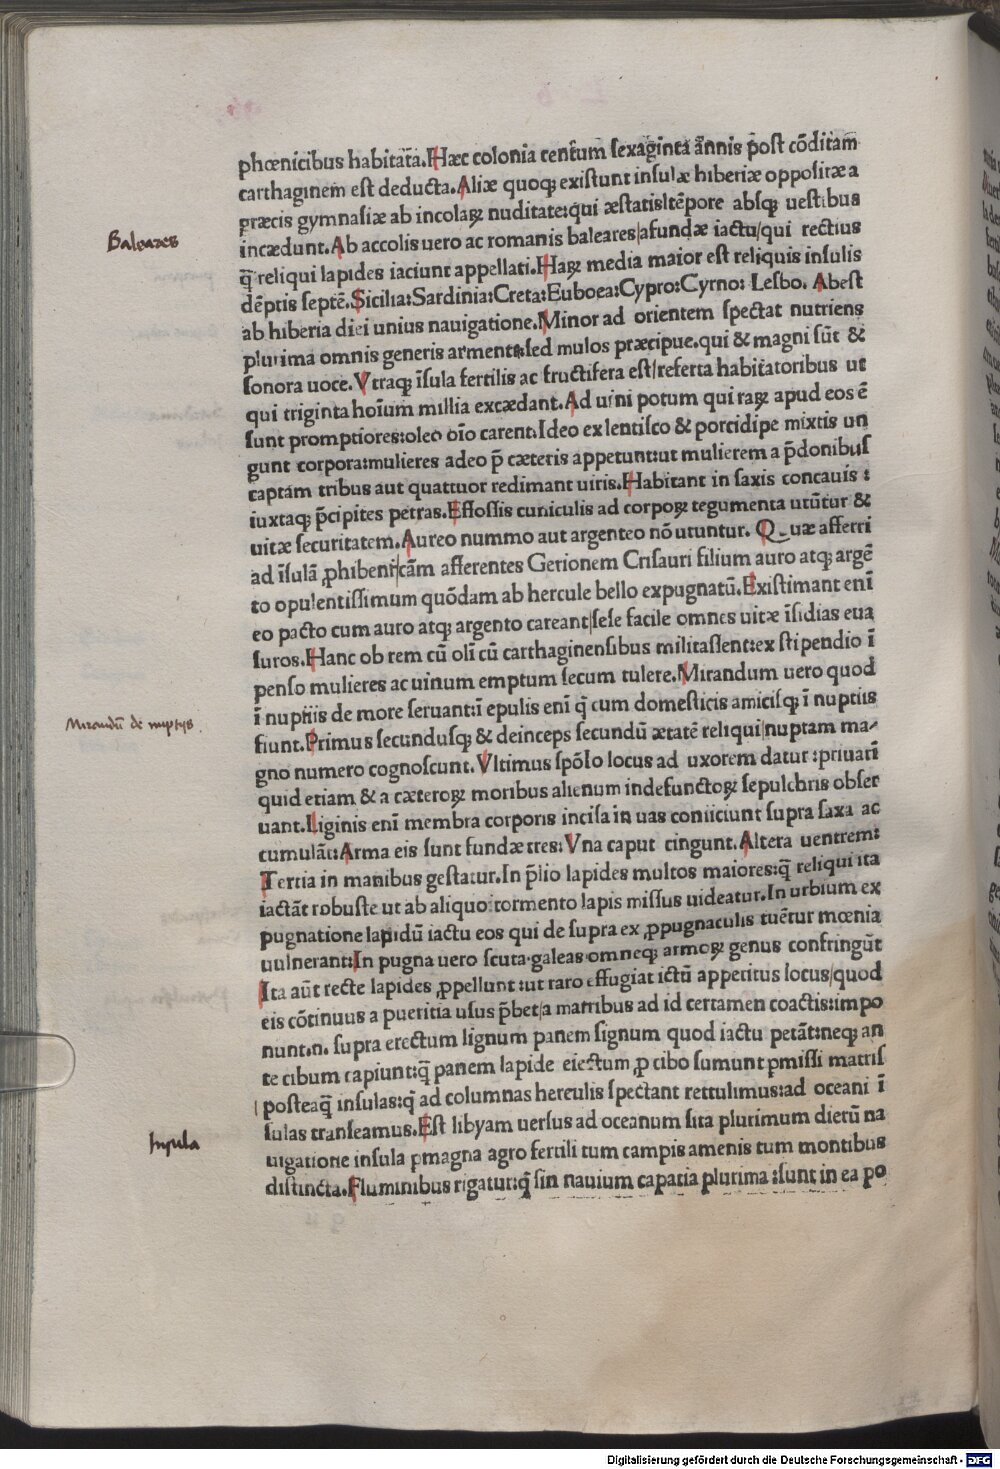 phœnicibus habitata. Hæc colonia centum sexaginta annis post cōditam
carthaginem est deducta. Aliæ quoqꝫ existunt insulæ hiberiæ oppositæ a
græcis gymnasiæ ab incolaꝝ nuditate:qui æstatis tēpore absqꝫ uestibus
Baleares
incædunt. Ab accolis uero ac romanis baleares/a fundæ iactu/qui rectius
q̄ reliqui lapides iaciunt appellati. Haꝝ media maior est reliquis insulis
dēptis septē. Sicilia:Sardinia:Creta:Euboea:Cypro:Cyrno: Lesbo. Abest
ab hiberia diei unius nauigatione. Minor ad orientem spectat nutriens
plurima omnis generis armenta:sed mulos præcipue.qui & magni sūt &
sonora uoce. Vtraqꝫ īsula fertilis ac fructifera est/referta habitatoribus ut
qui triginta hoīum millia excædant. Ad uini potum qui raꝝ apud eos ē
sunt promptiores:oleo oīo carent. Ideo ex lentisco & porci dipe mixtis un
gunt corpora:mulieres adeo p̄ cæteris appetunt:ut mulierem a p̄donibus
captam tribus aut quattuor redimant uiris. Habitant in saxis concauis :
iuxtaqꝫ p̄cipites petras. Effossis cuniculis ad corpoꝝ tegumenta utūtur &
uitæ securitatem. Aureo nummo aut argenteo nō utuntur. Quæ afferri
ad īsulā ꝓhibent/cām afferentes Gerionem Crisauri filium auro atqꝫ argē
to opulentissimum quōdam ab hercule bello expugnatū. Existimant enī
eo pacto cum auro atqꝫ argento careant/sese facile omnes uitæ īsidias eua
suros. Hanc ob rem cū olī cū carthaginensibus militassent:ex stipendio ī
penso mulieres ac uinum emptum secum tulere. Mirandum uero quod
Mirandū de nuptijs.
ī nuptiis de more seruant:ī epulis enī q̄ cum domesticis amicisqꝫ ī nuptiis
fiunt. Primus secundusqꝫ & deinceps secundū ætatē reliqui/nuptam ma-
gno numero cognoscunt. Vltimus spōso locus ad uxorem datur :priuatī
quid etiam & a cæteroꝝ moribus alienum in defunctoꝝ sepulchris obser
uant. Liginis enī membra corporis incisa in uas coniiciunt supra saxa ac
cumulāt: Arma eis sunt fundæ tres: Vna caput cingunt. Altera uentrem:
Tertia in manibus gestatur. In p̄lio lapides multos maiores:q̄ reliqui ita
iactāt robuste ut ab aliquo tormento lapis missus uideatur. In urbium ex
pugnatione lapidū iactu eos qui de supra ex ꝓpugnaculis tuētur mœnia
uulnerant: In pugna uero scuta.galeas omneqꝫ armoꝝ genus confringūt
Ita aūt recte lapides ꝓpellunt :ut raro effugiat ictū appetitus locus/quod
eis cōtinuus a pueritia usus p̄bet/a matribus ad id certamen coactis:impo
nunt.n. supra erectum lignum panem signum quod iactu petāt:neqꝫ an
te cibum capiunt:q̄ panem lapide eiectum ꝓ cibo sumunt pmissi matris
posteaq̄ insulas:q̄ ad columnas herculis spectant rettulimus:ad oceani ī
sulas transeamus. Est libyam uersus ad oceanum sita plurimum dierū na
Insula
uigatione insula pmagna agro fertili tum campis amenis tum montibus
distincta. Fluminibus rigatur:q̄ sin nauium capatia plurima :sunt in ea po
Digitalisierung gefördert durch die Deutsche Forschungsgemeinschaft - DFG